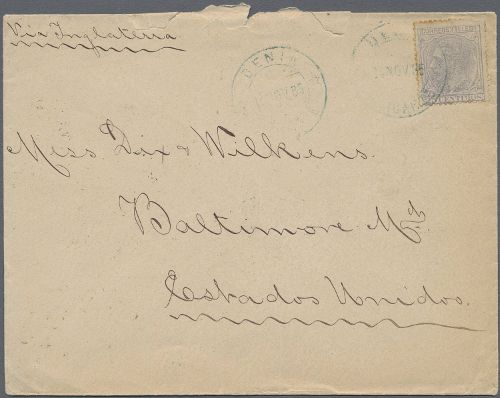 Via Inglaterra
DENIA
NOV 85
DEN
NOV 85
CORREOS Y TELEGS
CENTIMS
Miss Dix & Wilkens.
Baltimore Md.
Estados Unidos.